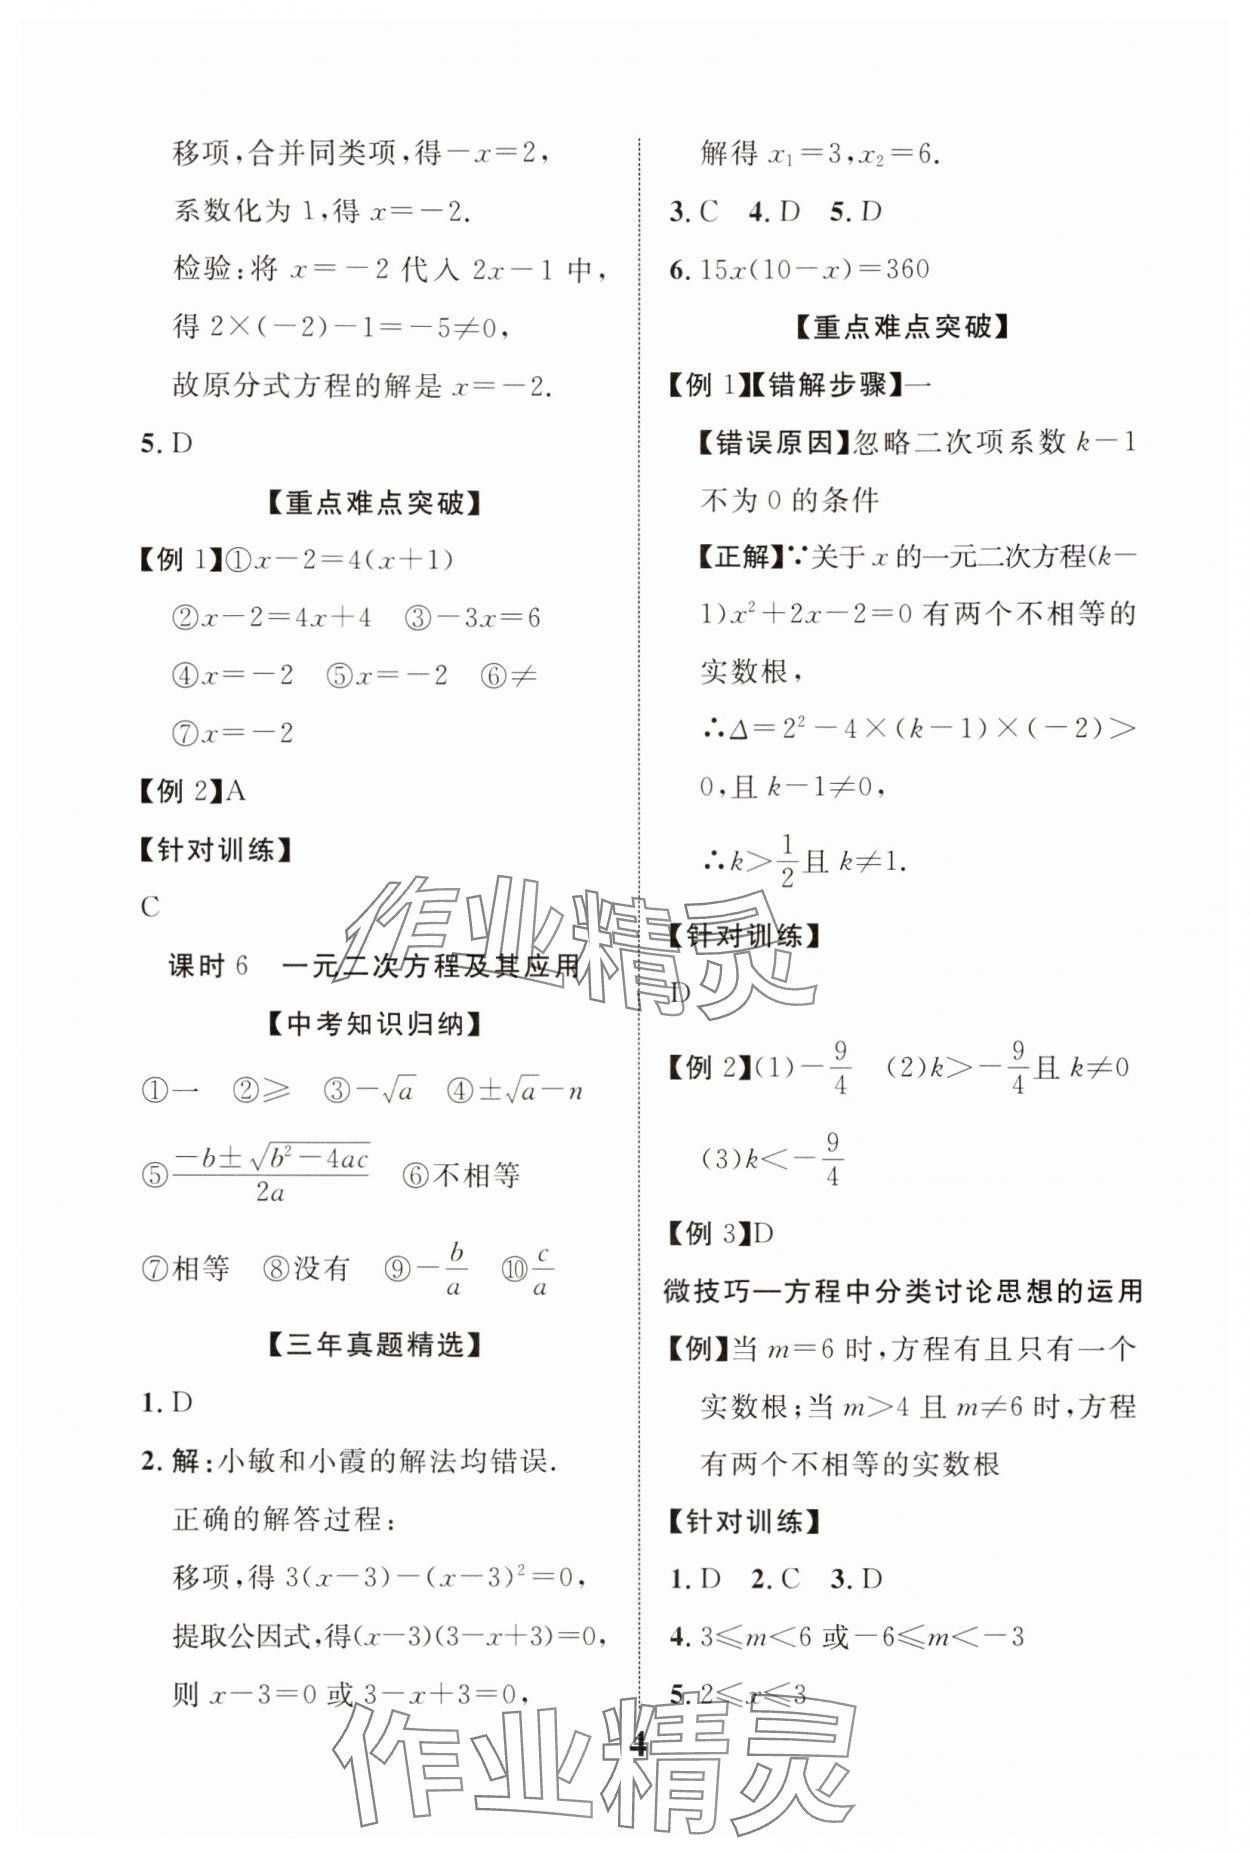 移项,合并同类项,得-x=2,
系数化为 1,得 x=-2.
检验:将 x=-2 代入 2x-1 中,
得 2×(-2)-1=-5≠0,
故原分式方程的解是 x=-2.
5. D
【重点难点突破】
【例 1】①x-2=4(x+1)
②x-2=4x+4 ③-3x=6
④x=-2 ⑤x=-2 ⑥≠
⑦x=-2
【例 2】A
【针对训练】
C
课时 6 一元二次方程及其应用
【中考知识归纳】
①一 ②≥ ③-√a ④±√a-n
⑤(-b±√(b²-4ac))/2a ⑥不相等
⑦相等 ⑧没有 ⑨-b/a ⑩c/a
【三年真题精选】
1. D
2. 解:小敏和小霞的解法均错误.
正确的解答过程:
移项,得 3(x-3)-(x-3)²=0,
提取公因式,得(x-3)(3-x+3)=0,
则 x-3=0 或 3-x+3=0,
解得 x₁=3,x₂=6.
3. C 4. D 5. D
6. 15x(10-x)=360
【重点难点突破】
【例 1】【错解步骤】一
【错误原因】忽略二次项系数 k-1
不为 0 的条件
【正解】∵关于 x 的一元二次方程(k-
1)x²+2x-2=0 有两个不相等的
实数根,
∴Δ=2²-4×(k-1)×(-2)>
0,且 k-1≠0,
∴k>1/2且 k≠1.
【针对训练】
D
【例 2】(1)-9/4 (2)k>-9/4且 k≠0
(3)k<-9/4
【例 3】D
微技巧—方程中分类讨论思想的运用
【例】当 m=6 时,方程有且只有一个
实数根;当 m>4 且 m≠6 时,方程
有两个不相等的实数根
【针对训练】
1. D 2. C 3. D
4. 3≤m<6 或-6≤m<-3
5. 2≤x≤3
4
作业精灵
作业精灵